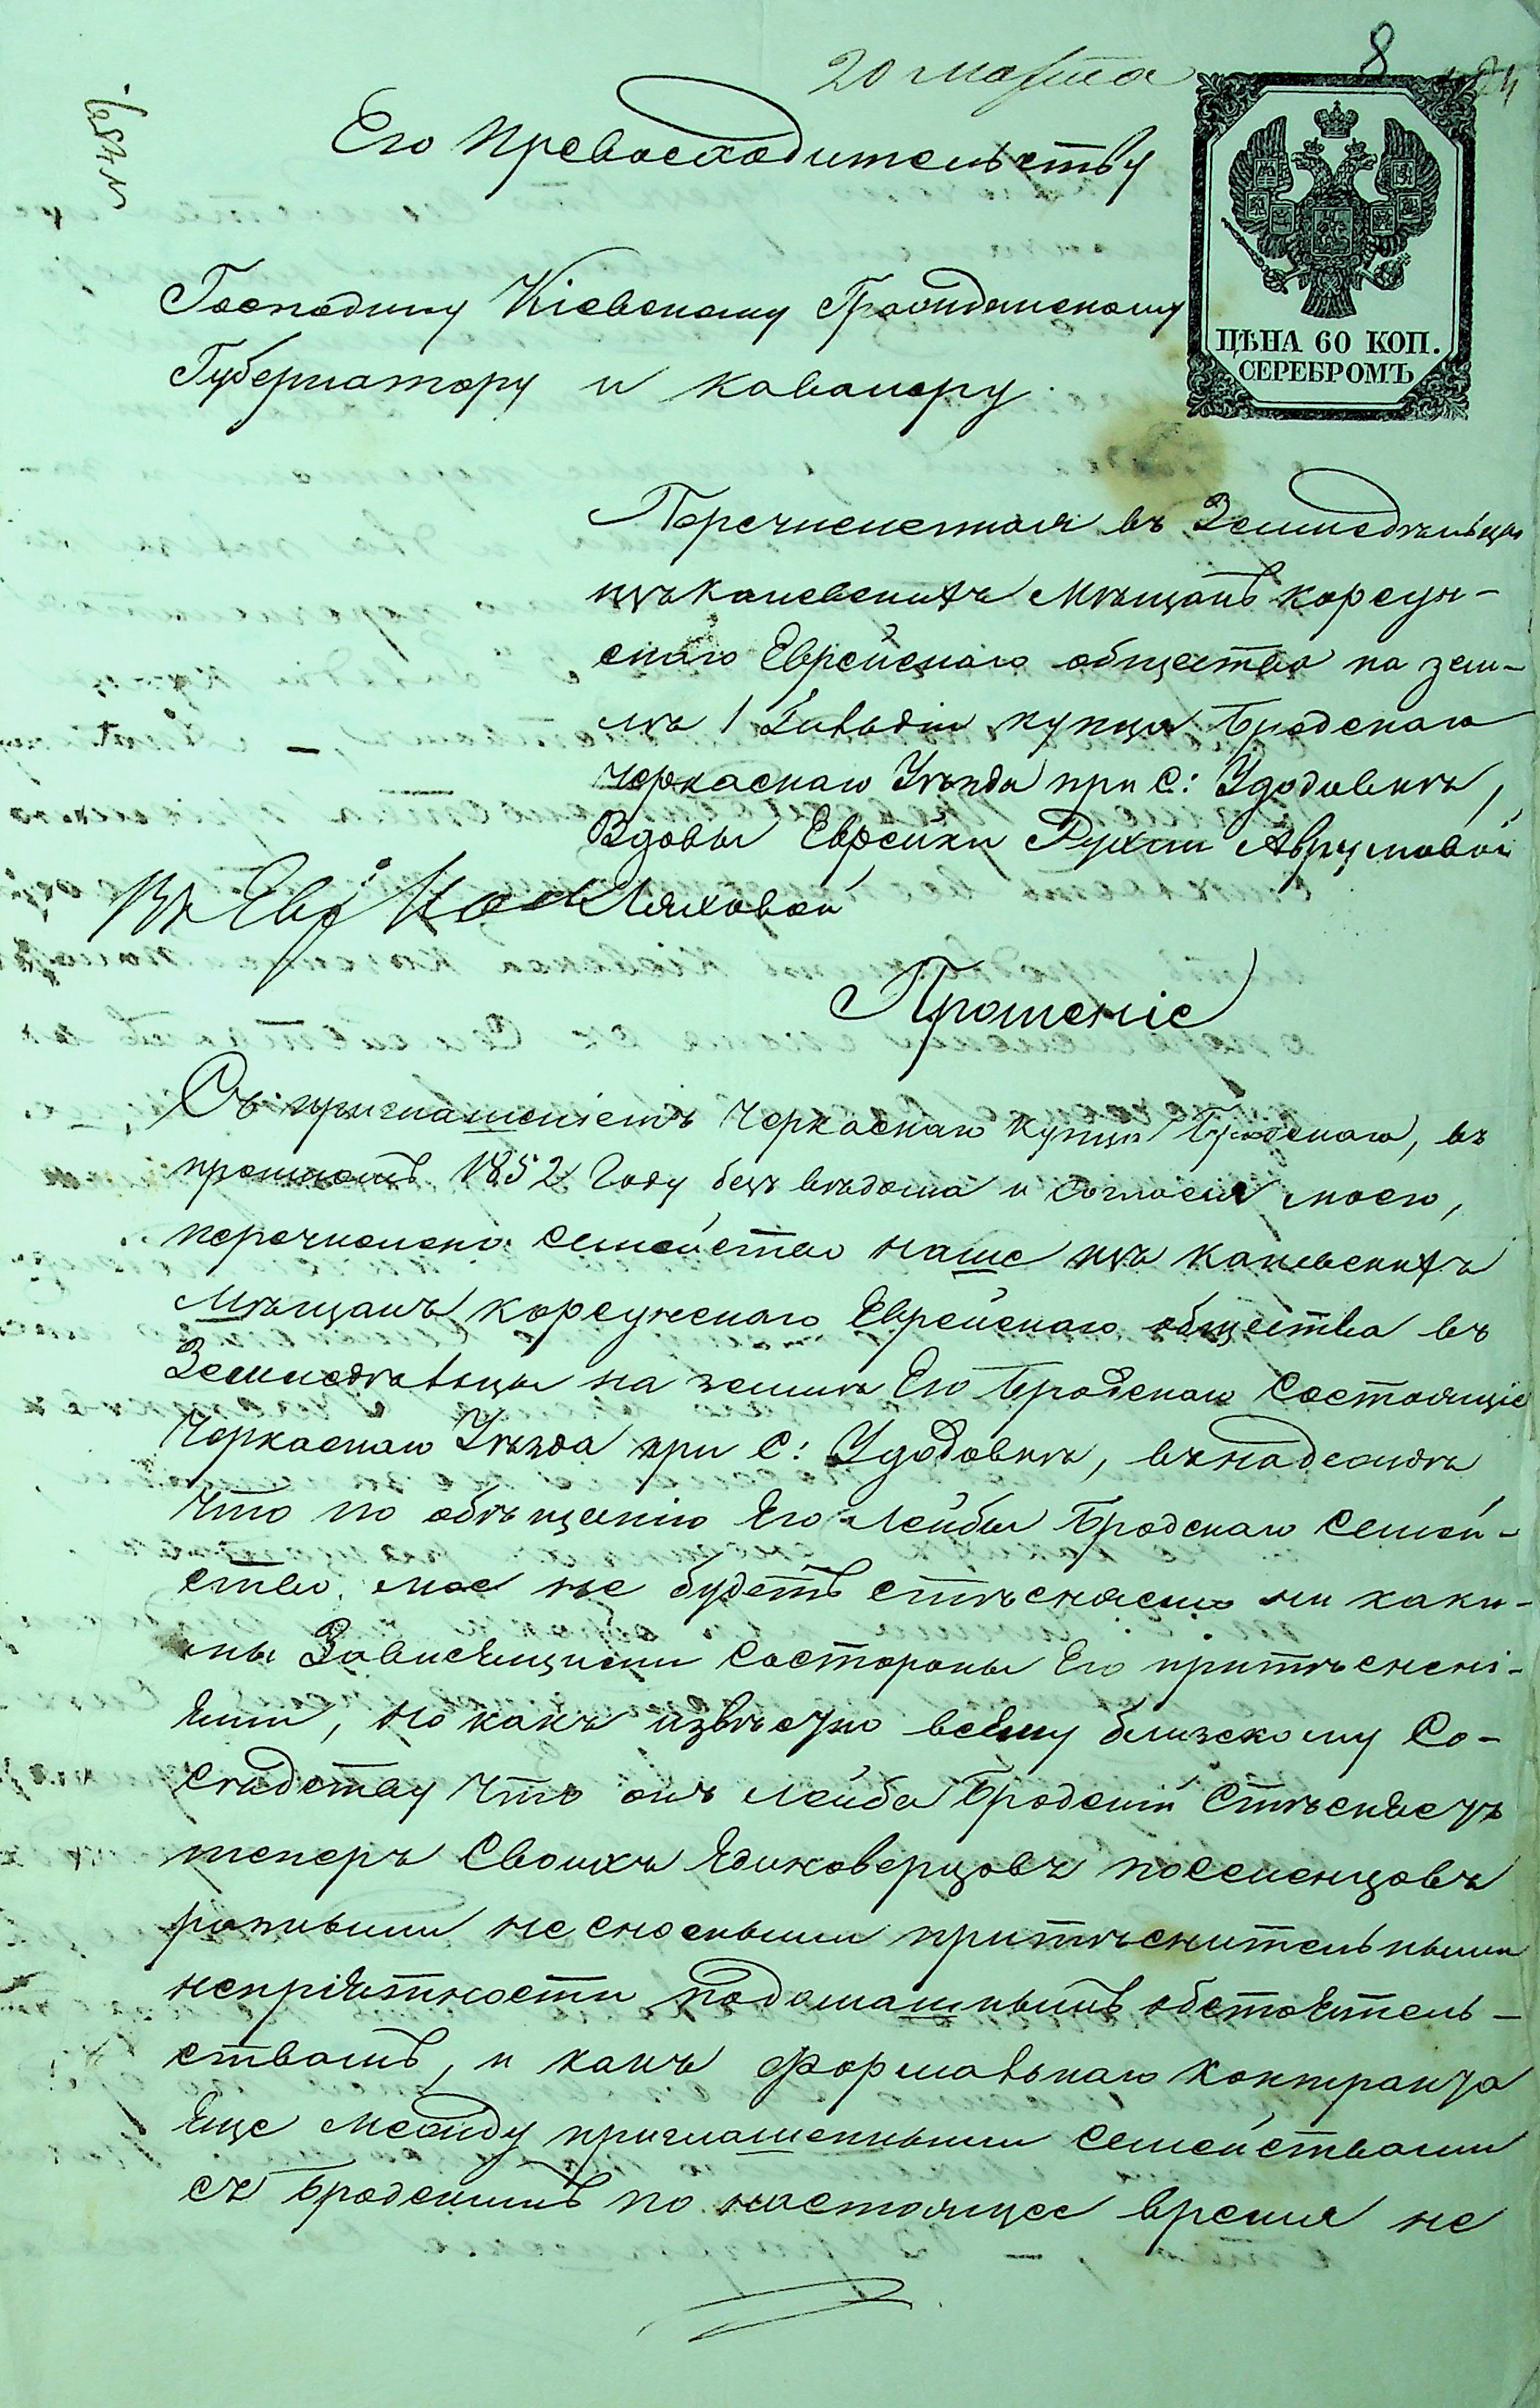 20 марта
8
Его Превосходительству
Господину Кіевскому Гражданскому
Губернатору и кавалеру.
ЦѢНА 60 КОП.
СЕРЕБРОМЪ
Перечисленная въ Земледѣльцы
изъ каневскихъ мѣщанъ корсун-
скаго Еврейскаго общества на зем-
лѣ 1 Гильдіи купца Бродскаго
Черкаскаго Уѣзда при С: Удодовкѣ,
Вдовы Еврейки Рухли Аврумовой
Ляховой
Прошеніе
Съ приглашеніемъ Черкаскаго купца Бродскаго, въ
прошломъ 1852 Году безъ вѣдома и согласия моего,
перечислено семейство наше изъ каневскихъ
Мѣщанъ корсунскаго Еврейскаго общества въ
Земледѣльцы на землѣ Его Бродскаго состоящіе
Черкаскаго Уѣзда при С: Удодовкѣ, въ надеждѣ
что по обѣщанію Его Лейбы Бродскаго семей-
ство мое не будетъ стѣсняемо ни каки-
мы Зависящими состороны Его притѣснені-
ями, но какъ извѣстно всему близскому Со-
сѣдству что онъ Лейба Бродскій Стѣсняетъ
теперъ Своихъ Единоверцовъ поселенцовъ
разными не сносными притѣснительными
непріятности по домашнымъ обстоятель-
ствамъ, и какъ формальнаго контракта
Еще между приглашенными семействами
съ Бродскимъ по настоящее время не